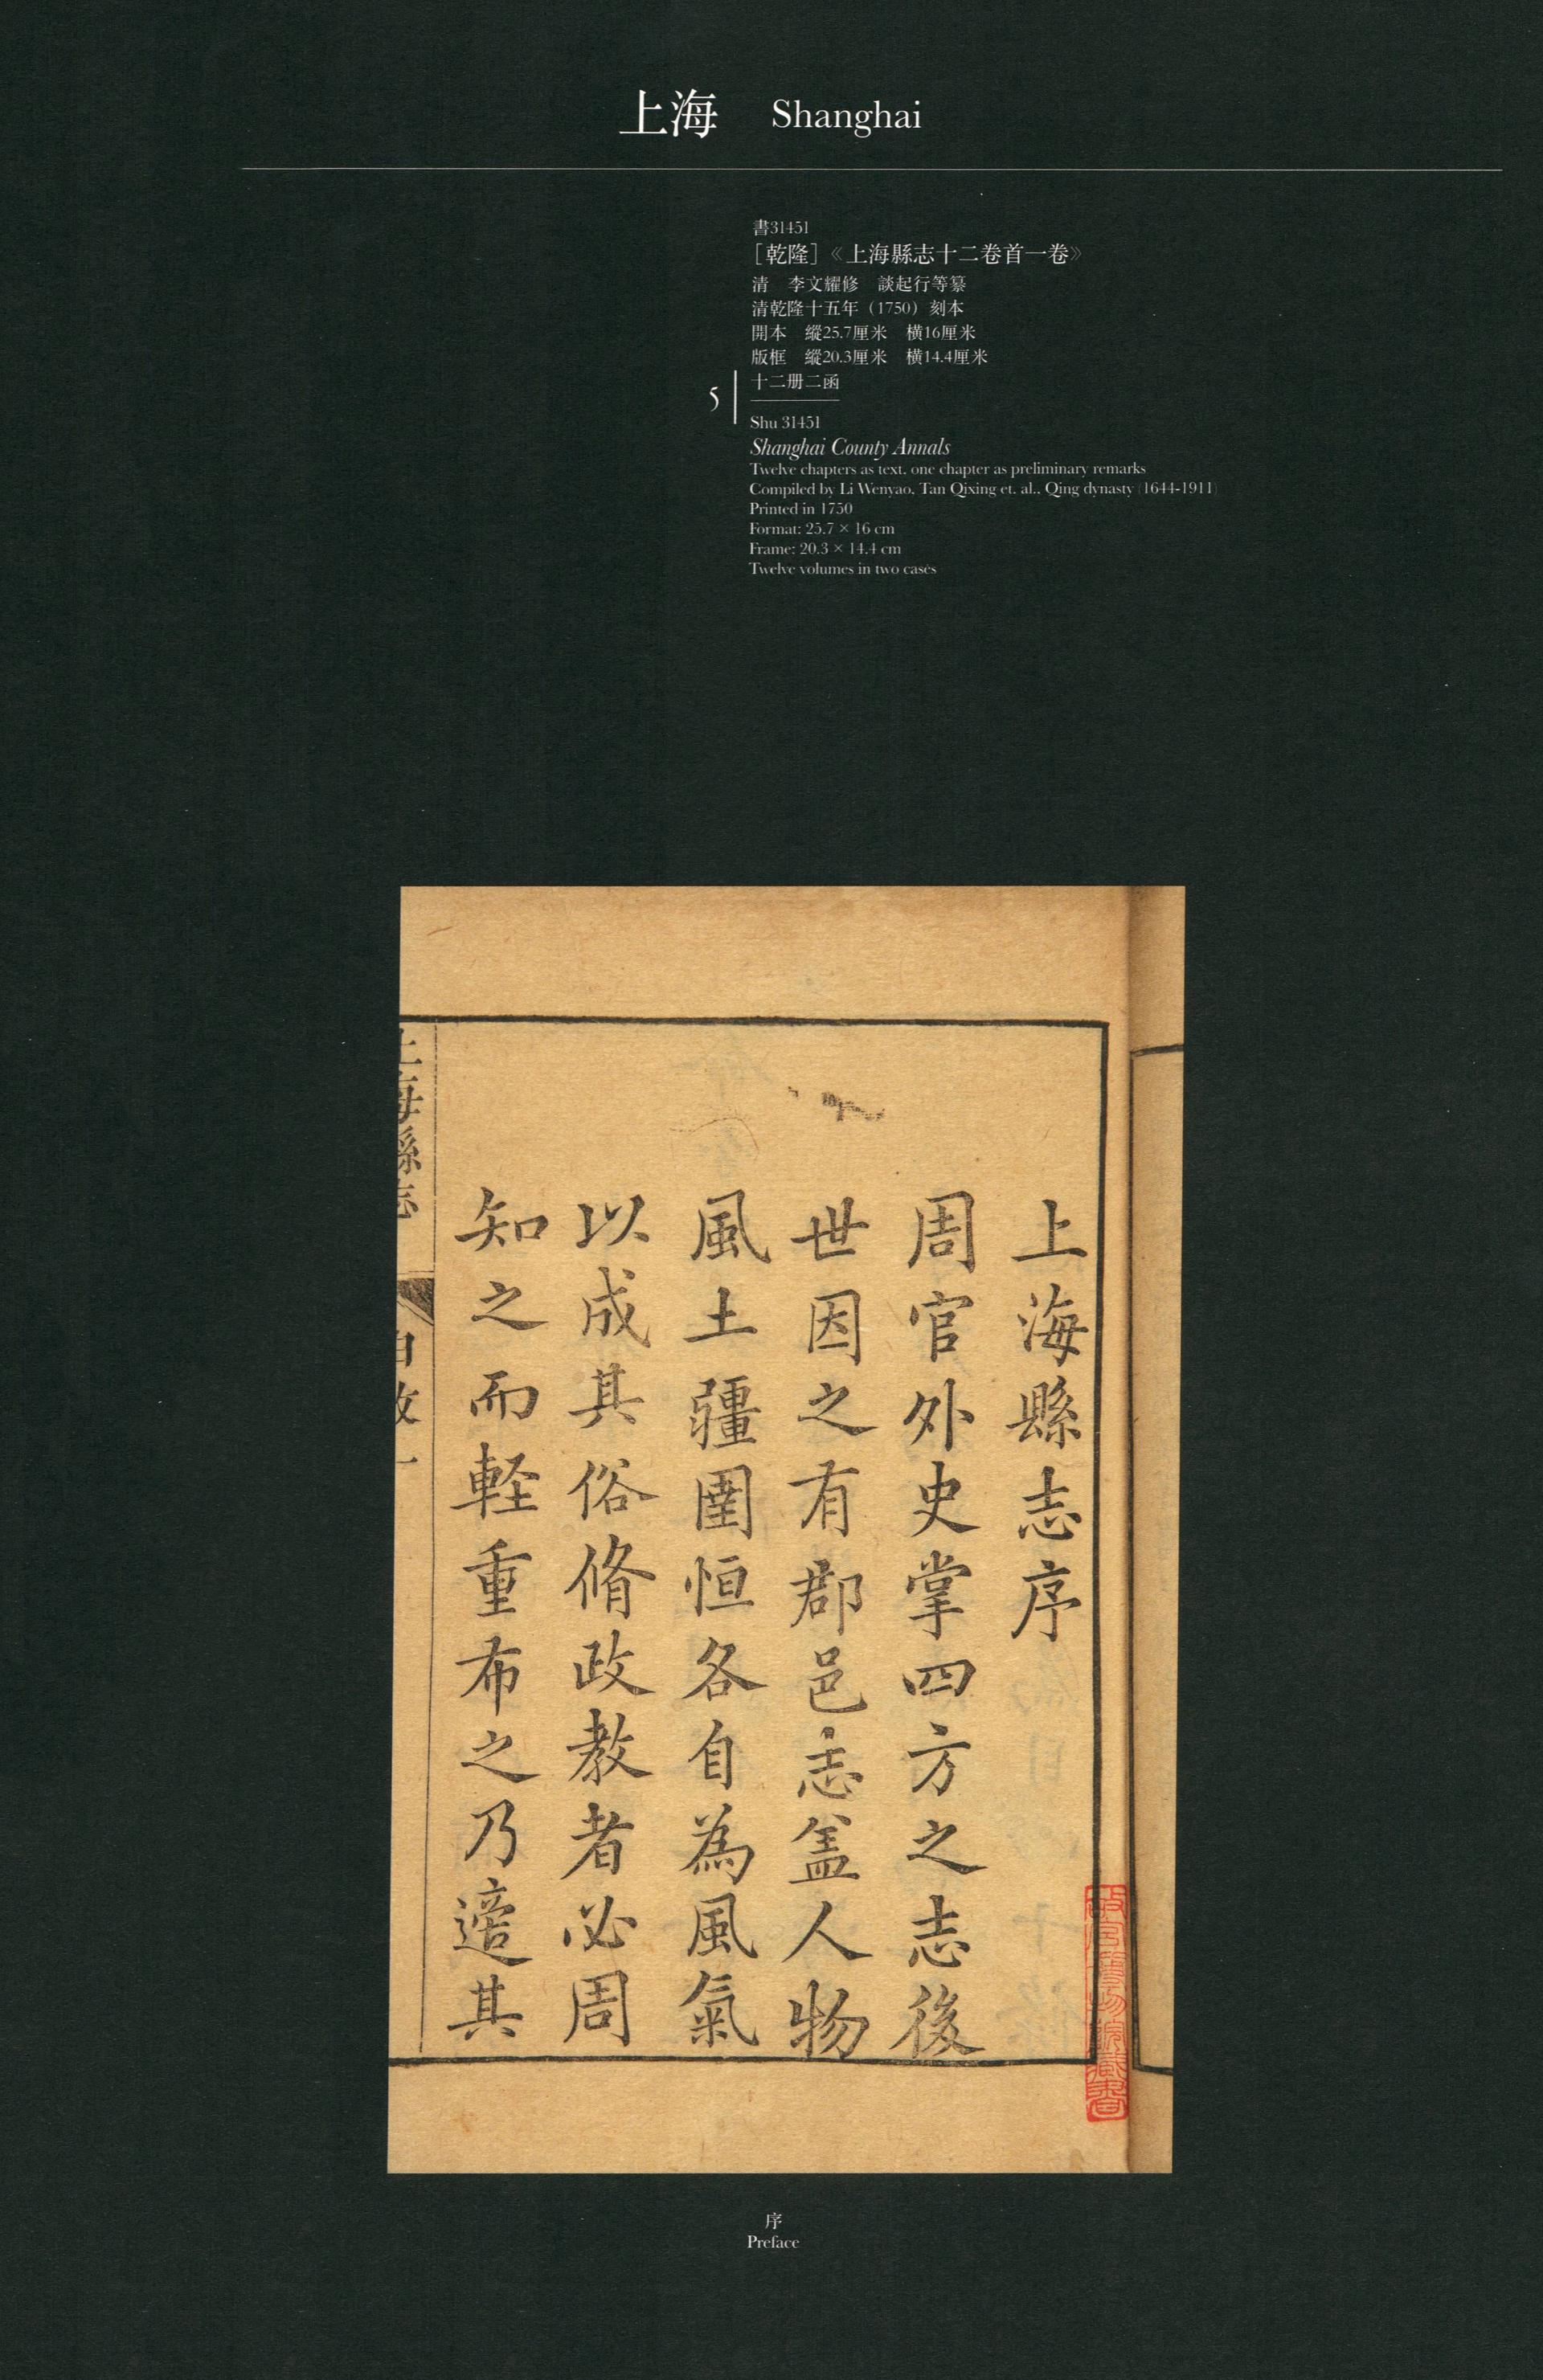 上海 Shanghai
書31451
［乾隆］《上海縣志十二卷首一卷》
清 李文耀修 談起行等纂
清乾隆十五年（1750）刻本
開本 縱25.7厘米 横16厘米
版框 縱20.3厘米 横14.4厘米
十二册二函
5
Shu 31451
Shanghai County Annals
Twelve chapters as text, one chapter as preliminary remarks
Compiled by Li Wenyao, Tan Qixing et. al., Qing dynasty (1644-1911)
Printed in 1750
Format: 25.7 × 16 cm
Frame: 20.3 × 14.4 cm
Twelve volumes in two cases
上海縣志序
周官外史掌四方之志後
世因之有郡邑志盖人物
風土疆圉恒各自為風氣
以成其俗脩政教者必周
知之而軽重布之乃適其
上海縣志
一
故宮博物院藏書
序
Preface